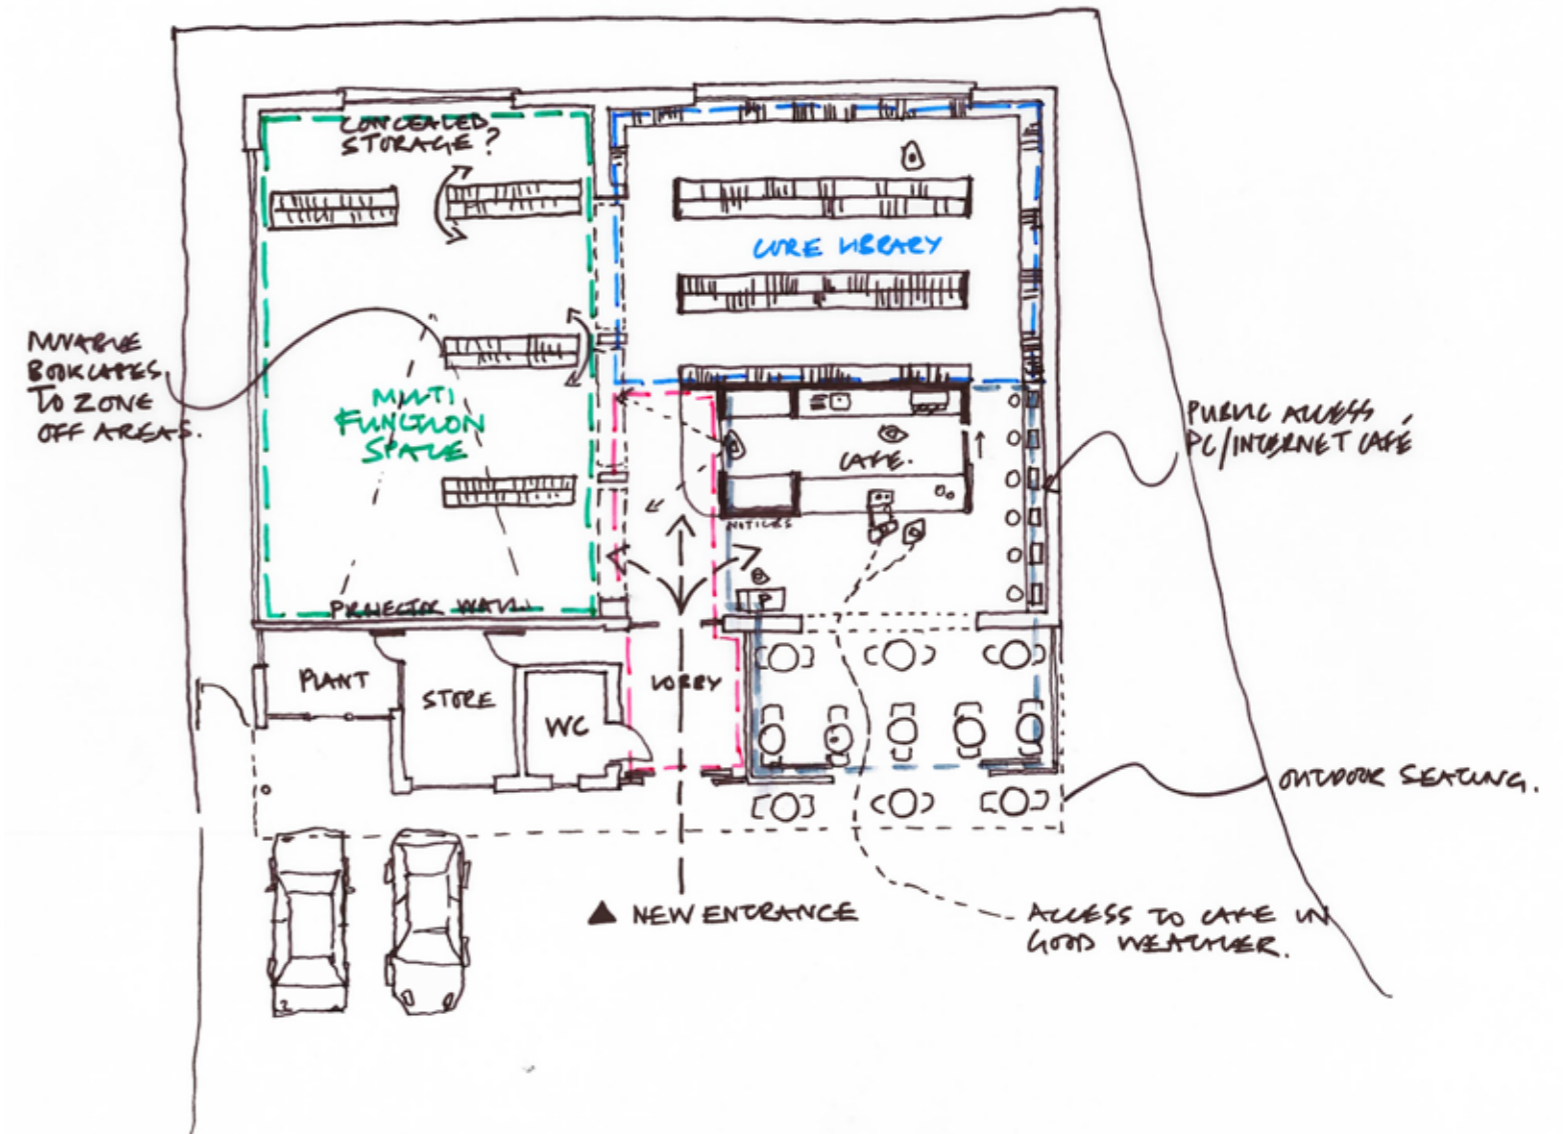 CONCEALED
STORAGE?
CORE LIBRARY
MOVABLE
BOOKCASES.
TO ZONE
OFF AREAS.
MULTI
FUNCTION
SPACE
PUBLIC ACCESS
PC/INTERNET CAFE
CAFE.
NOTICES
P
PROJECTOR WALL
PLANT
STORE
WC
LOBBY
OUTDOOR SEATING.
NEW ENTRANCE
ACCESS TO CAFE IN
GOOD WEATHER.